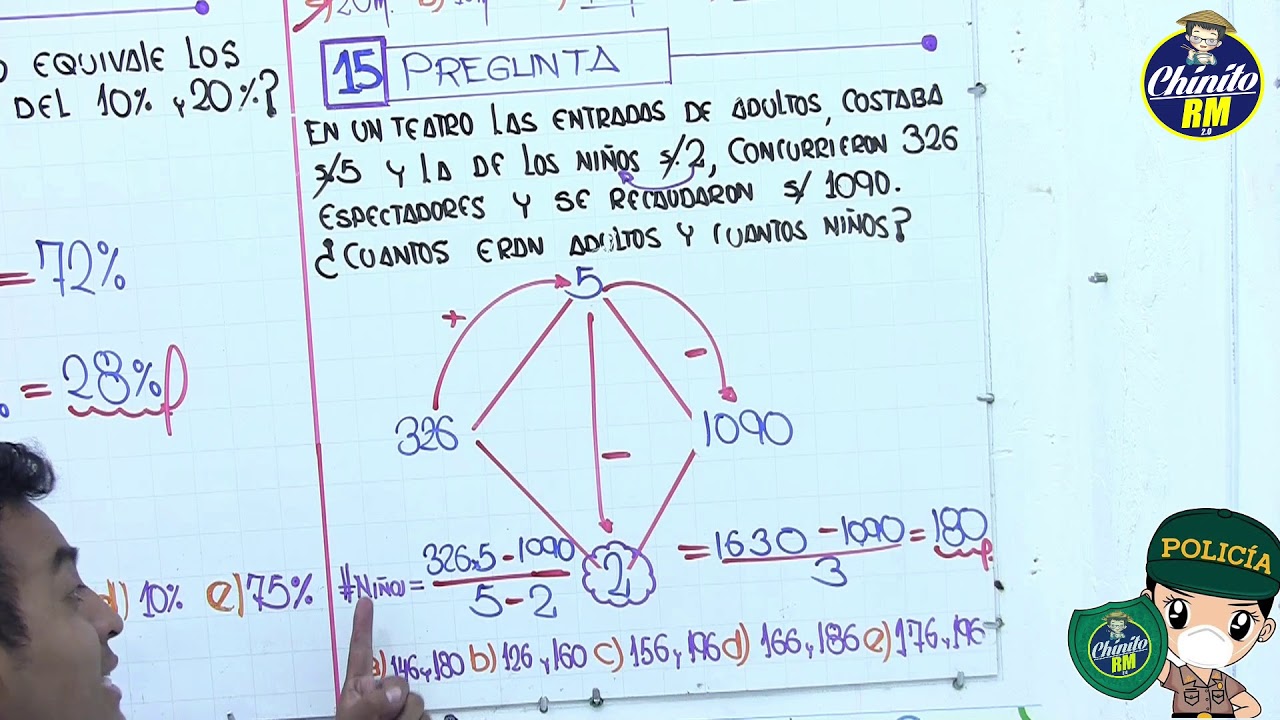 EQUIVALE LOS
DEL 10% y 20%?
= 72%
= 28%
d) 10% e) 75%
15 PREGUNTA
EN UN TEATRO LAS ENTRADAS DE ADULTOS, COSTABA
s/5 Y LA DE LOS NIÑOS s/.2, CONCURRIERON 326
ESPECTADORES Y SE RECAUDARON s/ 1090.
¿CUANTOS ERAN ADULTOS Y CUANTOS NIÑOS?
5
+
-
326
1090
-
2
#Niños = 326x5 - 1090 / 5 - 2 = 1630 - 1090 / 3 = 180
a) 146 y 180 b) 126 y 160 c) 156 y 196 d) 166 y 186 e) 176 y 196
Chinito
RM
2.0
POLICÍA
Chinito
RM
2.0